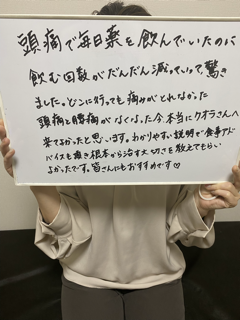 頭痛で毎日薬を飲んでいたのに
飲む回数がだんだん減っていって、驚き
ました。どこに行っても痛みがとれなかった
頭痛と腰痛がなくなった今、本当にクオラさんへ
来てよかったと思います。わかりやすい説明で食事アド
バイスも頂き根本から治す大切さを教えてもらい
よかったです。皆さんにもおすすめです♡